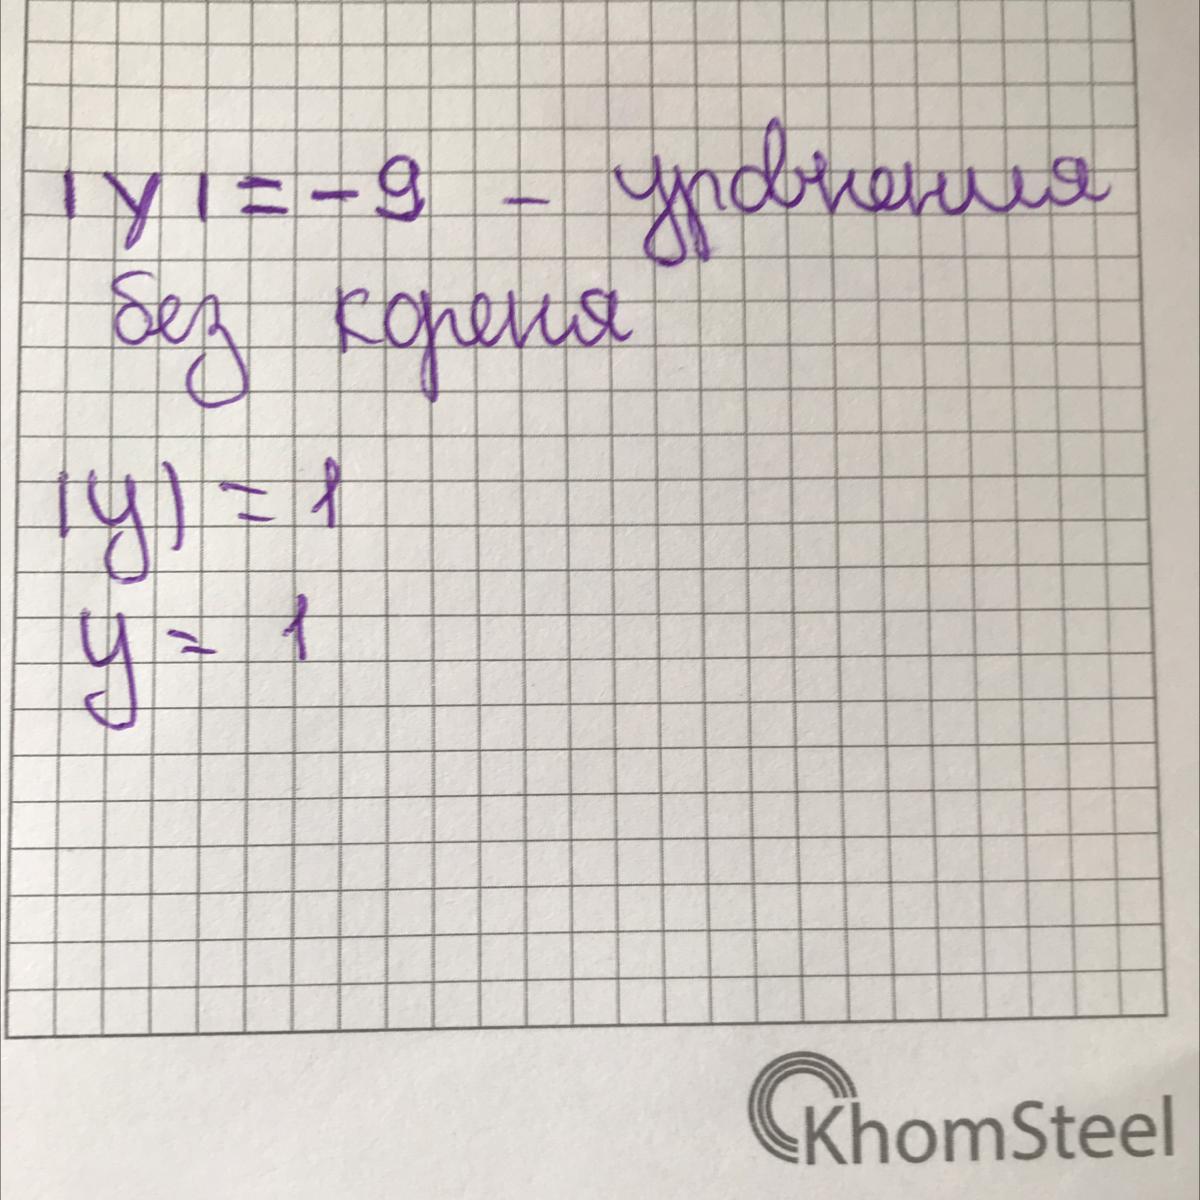 |y|=-9 - уровнения
без кореня
|y|=1
y=1
KhomSteel